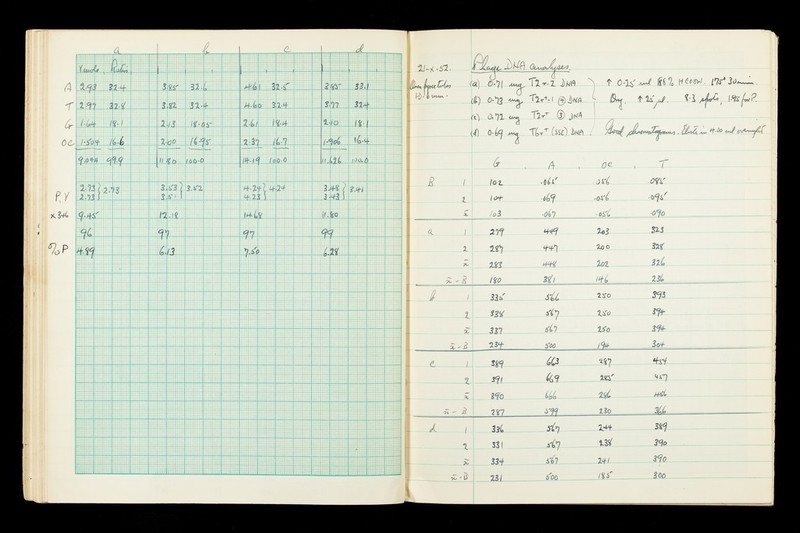 a b c d
A 2.93 32.4 3.85 32.6 4.61 32.5 3.85 33.1
T 2.97 32.8 3.82 32.4 4.60 32.4 3.77 32.4
G 1.64 18.1 2.13 18.05 2.61 18.4 2.10 18.1
OC 1.504 16.6 2.00 16.95 2.37 16.7 1.906 16.4
9.044 99.9 11.80 100.0 14.19 100.0 11.626 100.0
P, Y 2.73 2.73 2.73 3.53 3.51 3.52 4.24 4.23 4.24 3.43 3.43 3.41
x 3.46 9.45 12.18 14.68 11.80
96 97 97 99
% P 4.89 6.13 7.50 6.28
21-x-52. Phage DNA analyses.
(a) 0.71 mg T2r-2 DNA
(b) 0.73 mg T2r+-1 DNA
(c) 0.72 mg T2r+ DNA
(d) 0.69 mg T6r+ (SSC) DNA
↑ 0.25 ml 88% HCOOH. 175° 30 min
Dry. ↑ 25 µl.
Good chromatograms.
G A OC T
B 1 102 .065 .056 .085
2 104 .069 .056 .095
x̄ 103 .067 .056 .090
a 1 279 449 203 323
2 287 447 200 328
x̄ 283 448 202 326
x̄ - B 180 381 146 236
b 1 335 566 250 393
2 338 567 250 394
x̄ 337 567 250 394
x̄ - B 234 500 194 304
c 1 389 663 287 454
2 391 669 285 457
x̄ 390 666 286 456
x̄ - B 287 599 230 366
d 1 336 567 244 389
2 331 567 238 390
x̄ 334 567 241 390
x̄ - B 231 500 185 300